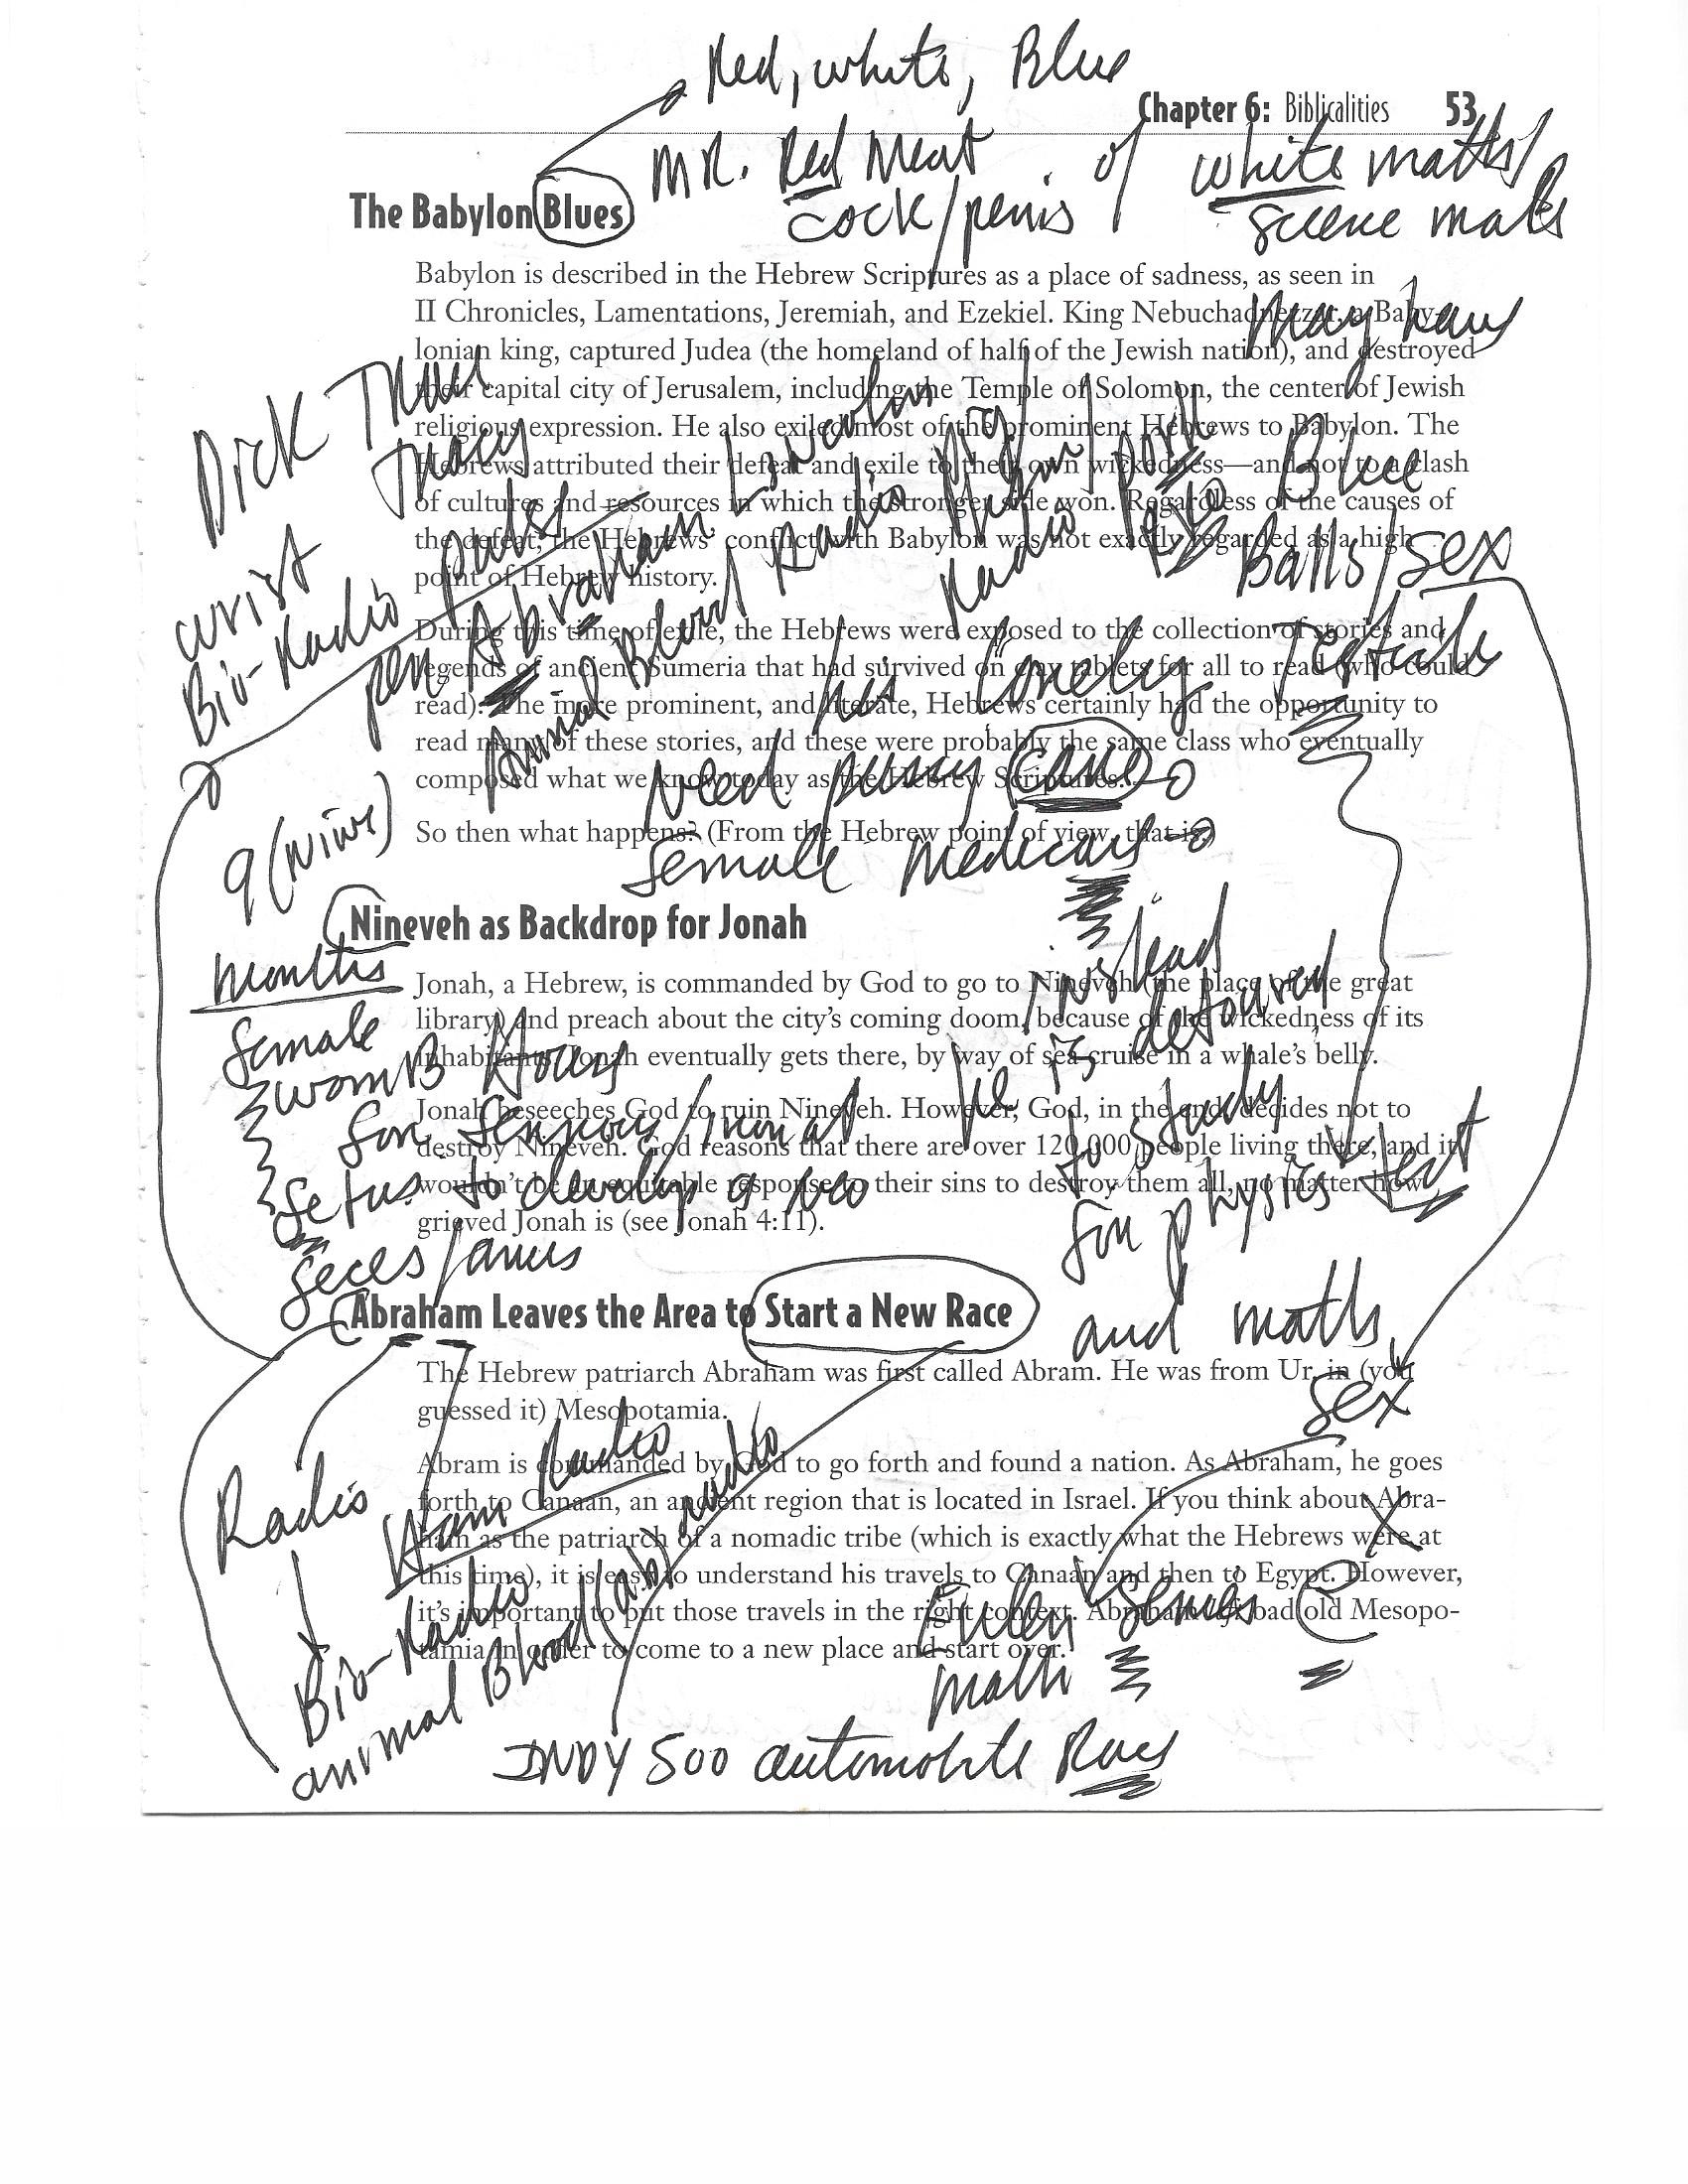 Red, white, Blue
Chapter 6: Biblicalities 53
MR. Red Meat of white
cock/penis
The Babylon Blues
Babylon is described in the Hebrew Scriptures as a place of sadness, as seen in
II Chronicles, Lamentations, Jeremiah, and Ezekiel. King Nebuchadnezzar, a Baby-
lonian king, captured Judea (the homeland of half of the Jewish nation), and destroyed
their capital city of Jerusalem, including the Temple of Solomon, the center of Jewish
religious expression. He also exiled most of the prominent Hebrews to Babylon. The
Hebrews attributed their defeat and exile to their own wickedness—and not to a clash
of cultures and resources in which the stronger side won. Regardless of the causes of
the defeat, the Hebrews' conflict with Babylon was not exactly regarded as a high
point of Hebrew history.
may have
Blue
Balls/sex
Testicle
Dick
wrist
Bio-Radio pulse
pen Abraham Lincoln
Animal Blood Radio
Radio
During this time of exile, the Hebrews were exposed to the collection of stories and
legends of ancient Sumeria that had survived on clay tablets for all to read (who could
read). The more prominent, and literate, Hebrews certainly had the opportunity to
read many of these stories, and these were probably the same class who eventually
composed what we know today as the Hebrew Scriptures.
his lonely
Need
So then what happens? (From the Hebrew point of view, that is.)
female
9 (Nine)
months
Nineveh as Backdrop for Jonah
Jonah, a Hebrew, is commanded by God to go to Nineveh (the place of the great
library) and preach about the city's coming doom, because of the wickedness of its
inhabitants. Jonah eventually gets there, by way of sea cruise in a whale's belly.
female
womB
fetus to develop a
feces/anus
instead
he is detoured
to study
for physics text
and math
Jonah beseeches God to ruin Nineveh. However, God, in the end, decides not to
destroy Nineveh. God reasons that there are over 120,000 people living there, and it
wouldn't be an equitable response to their sins to destroy them all, no matter how
grieved Jonah is (see Jonah 4:11).
Abraham Leaves the Area to Start a New Race
The Hebrew patriarch Abraham was first called Abram. He was from Ur, in (you
guessed it) Mesopotamia.
sex
Abram is commanded by God to go forth and found a nation. As Abraham, he goes
forth to Canaan, an ancient region that is located in Israel. If you think about Abra-
ham as the patriarch of a nomadic tribe (which is exactly what the Hebrews were at
this time), it is easy to understand his travels to Canaan and then to Egypt. However,
it's important to put those travels in the right context. Abraham left bad old Mesopo-
tamia in order to come to a new place and start over.
Radio
Ham Radio
Bio-Radio
animal Blood (ab) radio
Euler series e x
math
INDY 500 automobile Race